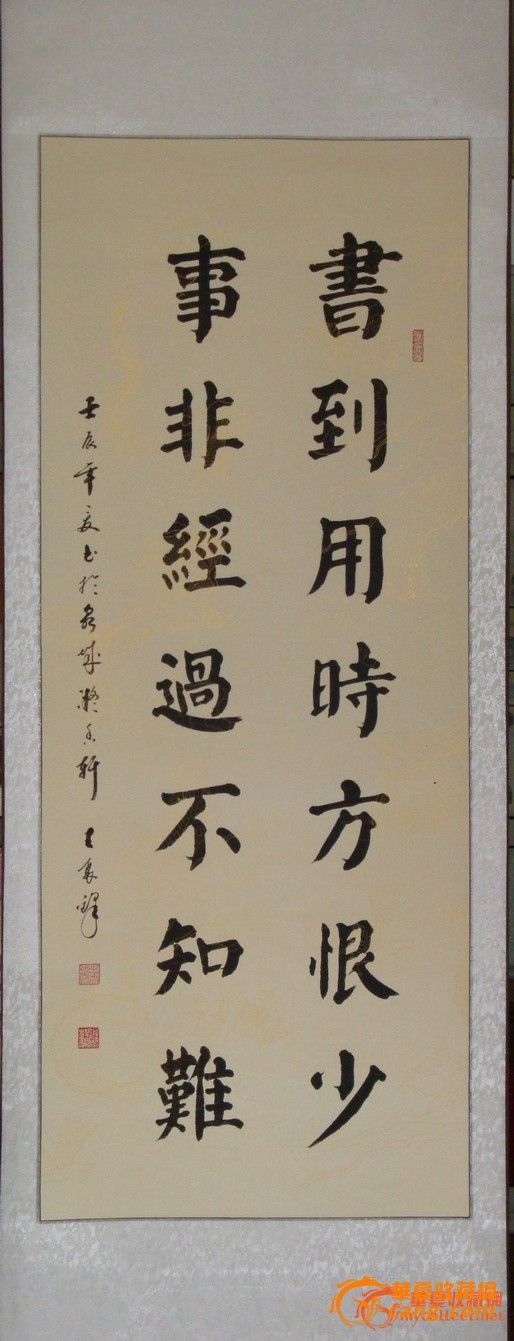 書到用時方恨少
事非經過不知難
壬辰年夏书於泉城
軒
華夏收藏網
mycollect.net